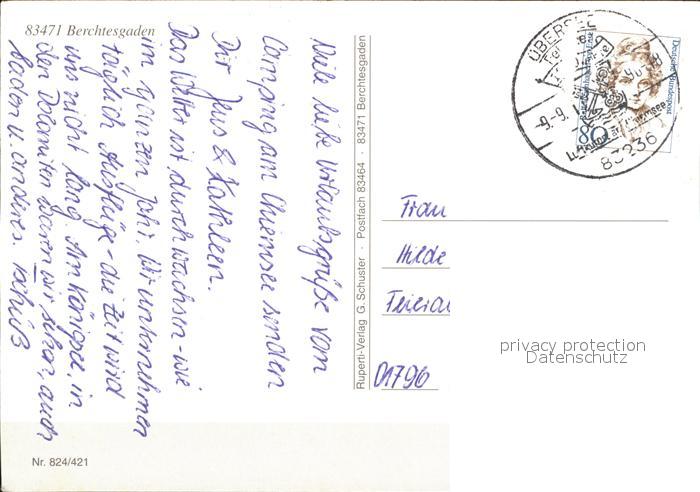 83471 Berchtesgaden
Viele liebe Urlaubsgrüße vom
Camping am Chiemsee senden
Dir Jens & Kathleen.
Das Wetter ist durchwachsen - wie
im ganzen Jahr. Wir unternehmen
täglich Ausflüge - die Zeit wird
uns nicht lang. Am Königsee, in
den Dolomiten waren wir schon, auch
baden u. anderes. Tschüß
Nr. 824/421
Ruperti-Verlag G. Schuster · Postfach 83464 · 83471 Berchtesgaden
ÜBERSEE
-9.-9.
83236
Deutsche Bundespost
80
Frau
Hilde
01796
privacy protection
Datenschutz